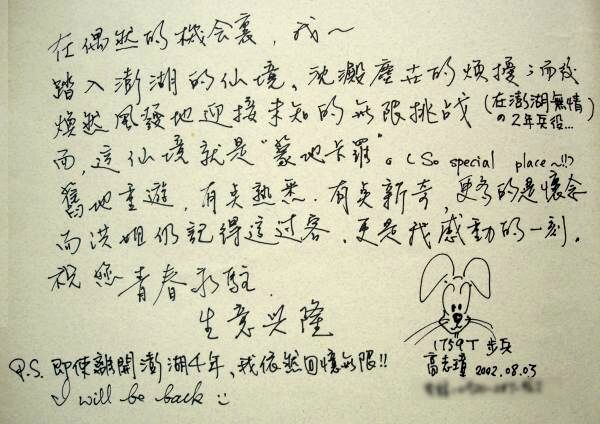 在偶然的機会裏，我～
踏入澎湖的仙境、沈澱塵世的煩擾；而後
煥然風發地迎接未知的無限挑战 (在澎湖無情の2年兵役...)
而，這仙境就是"蒙地卡羅"。(So special place~!!)
舊地重遊，有点熟悉．有点新奇，更多的是懷念
而洪姐仍記得這过客．更是我感動的一刻．
祝您青春永駐．
生意兴隆
1759T 步兵
高志瑋 2002.08.03
P.S. 即使離開澎湖4年、我依然回憶無限!!
I will be back